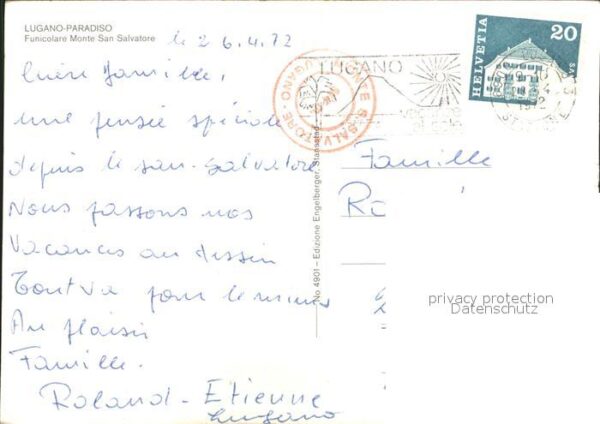 LUGANO-PARADISO
Funicolare Monte San Salvatore
le 26.4.72
Chère famille,
une pensée spéciale
depuis le San-Salvatore
Nous passons nos
Vacances au dessin
Tout va pour le mieux
Au plaisir
Famille.
Roland-Etienne
Lugano
No 4901 – Edizione Engelberger, Stansstad
MONTE S. SALVATORE · LUGANO
LUGANO
HELVETIA
20
Famille
privacy protection
Datenschutz